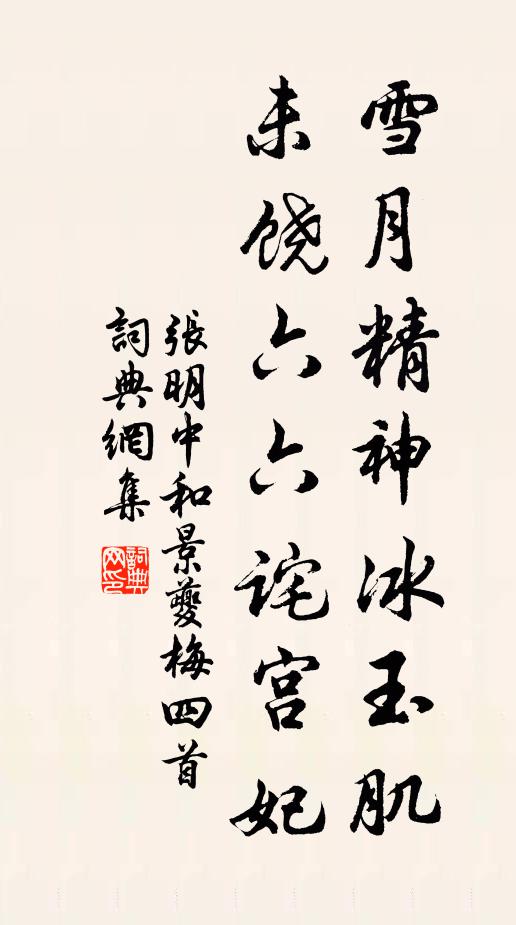 雪月精神冰玉肌
未饶六六诧宫妃
張明中和景夔梅四首
詞典網集
詞典网印